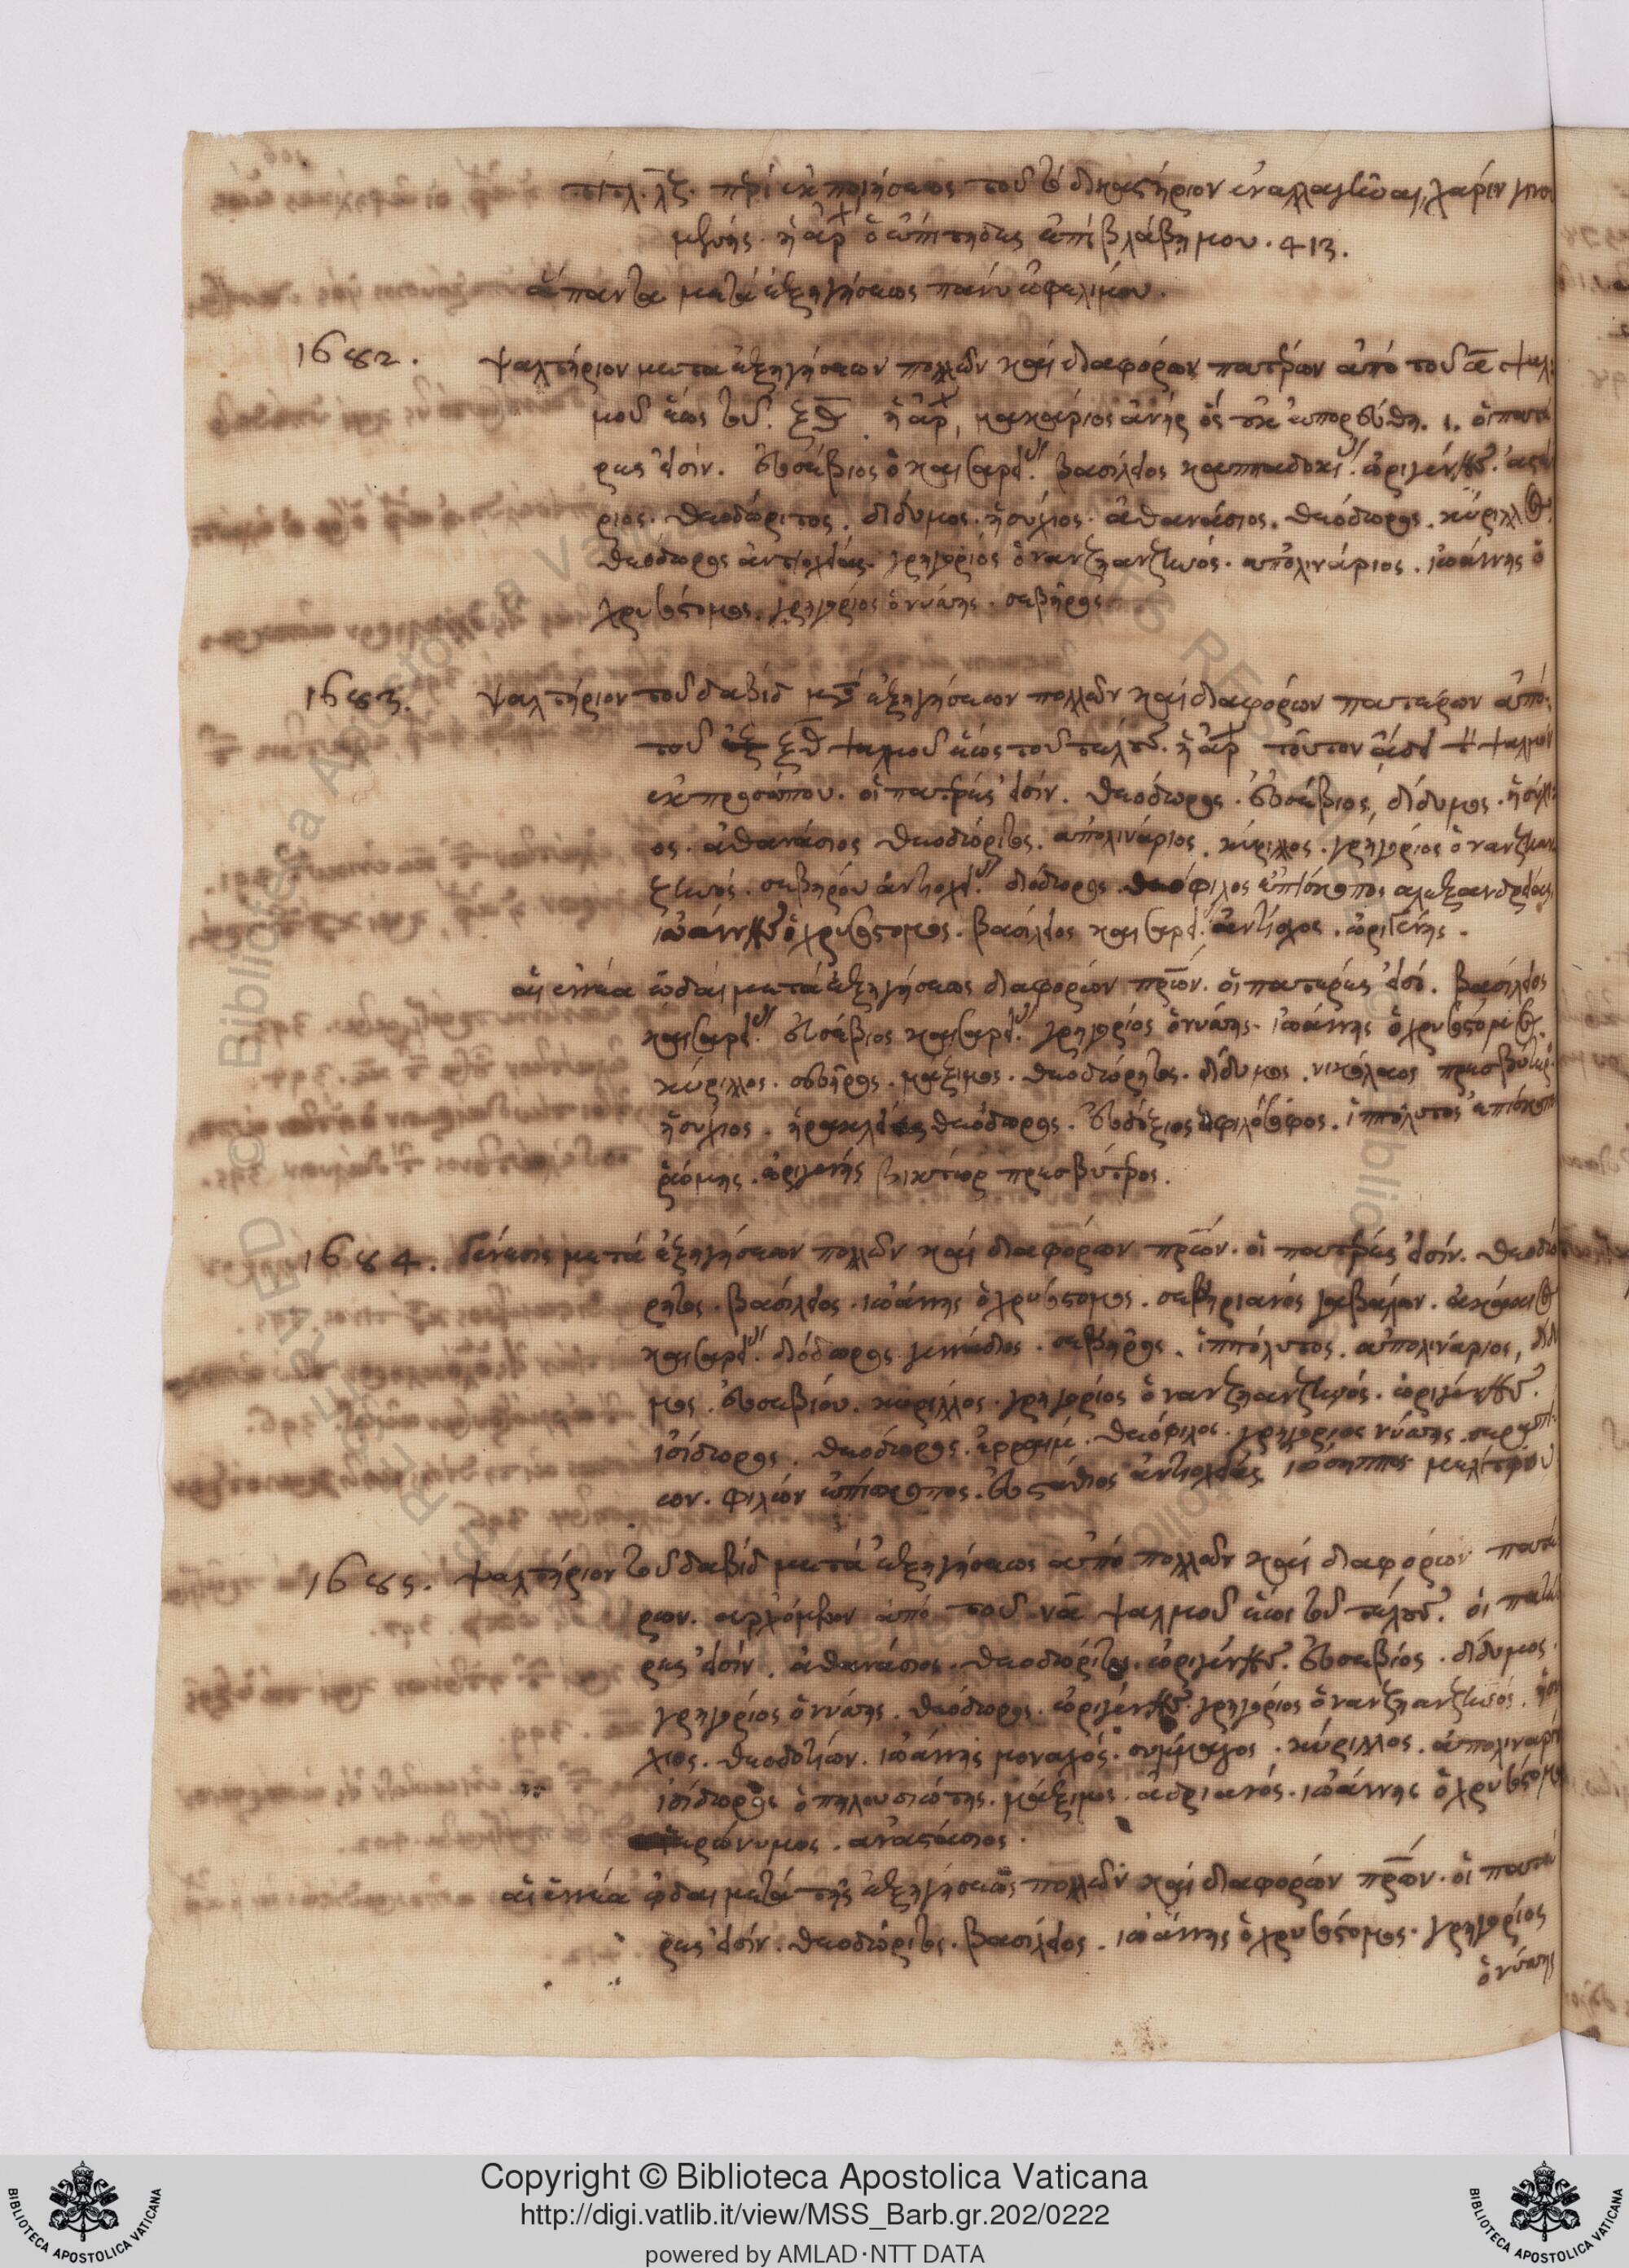 τιτλ. λζ. περὶ ἐκποιήσεως τοῦ δικαστήριον ἐναλλαγεῖσαι, χάριν γινο
μένης. ἡ ἀρχ ὁ ἐπίτηδες ἐπὶ βλάβῃ μου. 413.
ἅπαντα μετὰ ἐξηγήσεως πάνυ ὠφελίμου.
1682. ψαλτήριον μετα ἐξηγήσεων πολλῶν καὶ διαφόρων πατρῶν ἀπὸ τοῦ α ψαλ
μοῦ ἕως τοῦ ξθ. ἡ ἀρχ, μακάριος ἀνὴρ ὃς οὐκ ἐπορεύθη. 1. οἱ πατέ
ρες εἰσίν. εὐσέβιος ὁ καισαρεί. βασίλειος καππαδοκί. ὠριγένους. ἀστέ
ριος. θεοδώριτος. δίδυμος. ἡσύχιος. ἀθανάσιος. θεόδωρος. κύριλλος
θεόδωρος ἀντιοχείας. γρηγόριος ὁ νανζηανζηνός. ἀπολινάριος. ἰωάννης ὁ
χρυσόστομος. γρηγόριος ὁ νύσσης. σεβῆρος
1683. ψαλτήριον τοῦ δαβίδ μετὰ ἐξηγήσεων πολλῶν καὶ διαφόρων πατέρων ἀπὸ
τοῦ ξθ ψαλμοῦ ἕως τοῦ τέλους. ἡ ἀρχ τοῦτον ᾄδει τὸν ψαλμόν
ἐκ προσώπου. οἱ πατρες εἰσίν. θεόδωρος. εὐσέβιος, δίδυμος. ἡσύχι
ος. ἀθανάσιος θεοδώριτος. ἀπολινάριος. κύριλλος. γρηγόριος ὁ νανζιαν
ζηνός. σεβήρου ἀντιοχεί. διόδωρος. θεόφιλος ἐπίσκοπος ἀλεξανδρείας,
ἰωάννου ὁ χρυσόστομος. βασίλειος καισαρεί. ἀντίοχος. ὠριγένης.
αἱ ἐννέα ὠδαὶ μετὰ ἐξηγήσεως διαφόρων πρων. οἱ πατέρες εἰσί. βασίλειος
καισαρεί. εὐσέβιος καισαρεί. γρηγόριος ὁ νύσσης. ἰωάννης ὁ χρυσόστομος.
κύριλλος. σεβῆρος. μάξιμος. θεοδώρητος. δίδυμος. νικόλαος πρεσβύτερ.
ἡσύχιος. ἡρακλείας θεόδωρος. εὐδόξιος φιλόσοφος. ἱππόλυτος ἐπίσκοπο
ῥώμης. ὠριγένης βικτωρ πρεσβύτρος.
1684. Γένεσις μετὰ ἐξηγήσεων πολλῶν καὶ διαφόρων πρων. οἱ πατρες εἰσίν. θεοδώ
ρητος. βασίλειος. ἰωάννης ὁ χρυσόστομος. σεβηριανός γαβάλων. ἀκάκιος
καισαρεί. διόδωρος γεννάδιος. σεβῆρος. ἱππόλυτος. ἀπολινάριος, δίδυ
μος. εὐσεβίου. κύριλλος. γρηγόριος ὁ νανζηανζηνός. ὠριγένους.
ἰσίδωρος. θεόδωρος. ἐφραίμ. θεόφιλος. γρηγόριος νύσσης. σεραπί
ων. φίλων ἐπίσκοπος. εὐστάθιος ἀντιοχείας ἰώσηππος μελίτων
1685. ψαλτήριον τοῦ δαβίδ μετὰ ἐξηγήσεως ἀπὸ πολλῶν καὶ διαφόρων πατέ
ρων. ἀρχόμενον ἀπὸ τοῦ να ψαλμοῦ ἕως τοῦ τέλους. οἱ πατέ
ρες εἰσίν. ἀθανάσιος. θεοδώριτος. ὠριγένους. εὐσεβίος. δίδυμος.
γρηγόριος ὁ νύσσης. θεόδωρος. ὠριγένους. γρηγόριος ὁ νανζηανζηνός. ἡσύ
χιος. θεοδοτίων. ἰωάννης μοναχός. σύμμαχος. κύριλλος. ἀπολινάρι
ἰσίδωρος ὁ πηλουσιώτης. μάξιμος. ἀδριανός. ἰωάννης ὁ χρυσόστομο
ἱερώνυμος. ἀναστάσιος.
αἱ ἐννέα ᾠδαι μετὰ τῆς ἐξηγήσεως πολλῶν καὶ διαφορων πρων. οἱ πατέ
ρες εἰσίν. θεοδώριτος. βασίλειος. ἰωάννης ὁ χρυσόστομος. γρηγόριος
ὁ νύσσης
Copyright © Biblioteca Apostolica Vaticana
http://digi.vatlib.it/view/MSS_Barb.gr.202/0222
powered by AMLAD·NTT DATA
BIBLIOTECA APOSTOLICA VATICANA
BIBLIOTECA APOSTOLICA VATICANA